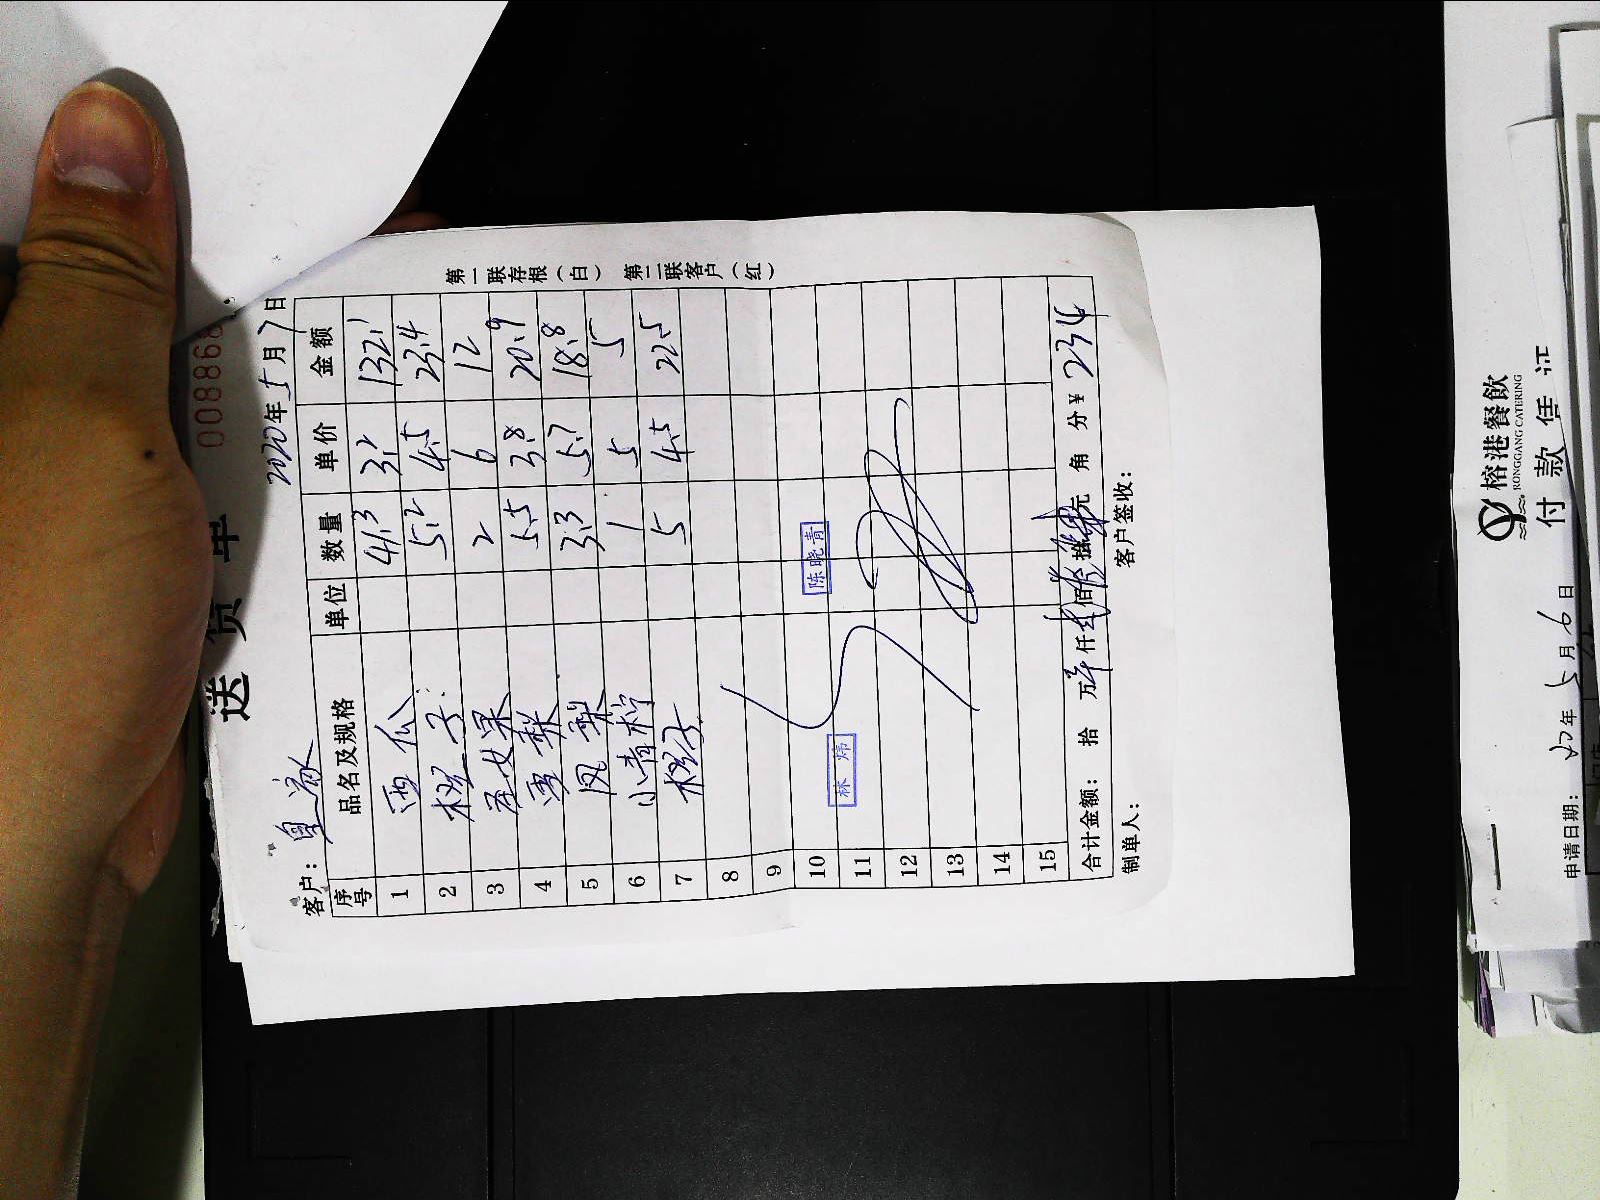 送货单
008868
客户：
2020年5月7日
序号 品名及规格 单位 数量 单价 金额
1 西瓜 41.3 3.2 132.1
2 橙子 5.2 4.5 23.4
3 2 6 12
4 雪梨 5.5 3.8 20.9
5 凤梨 3.3 5.7 18.8
6 小青柠 1 5 5
7 橙子 5 4.5 22.5
8
9
10
11
12
13
14
15
陈晓青
林炜
合计金额： 拾 万 仟 佰 拾 元 角 分 ¥ 234
制单人： 客户签收：
第一联存根（白） 第二联客户（红）
榕港餐飲
RONGGANG CATERING
付款凭证
申请日期： 20年5月6日